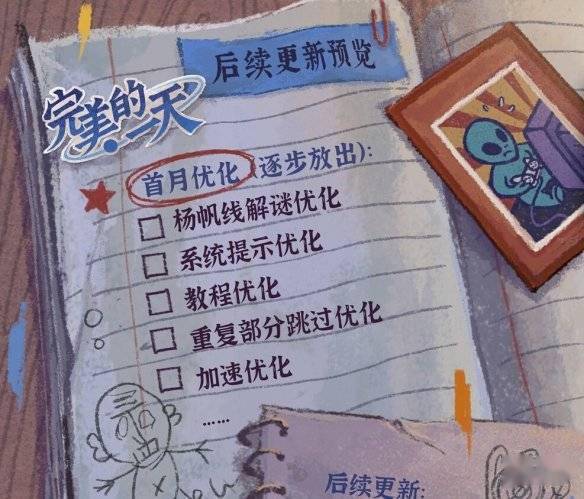 后续更新预览
完美的一天
首月优化（逐步放出）:
杨帆线解谜优化
系统提示优化
教程优化
重复部分跳过优化
加速优化
……
后续更新: